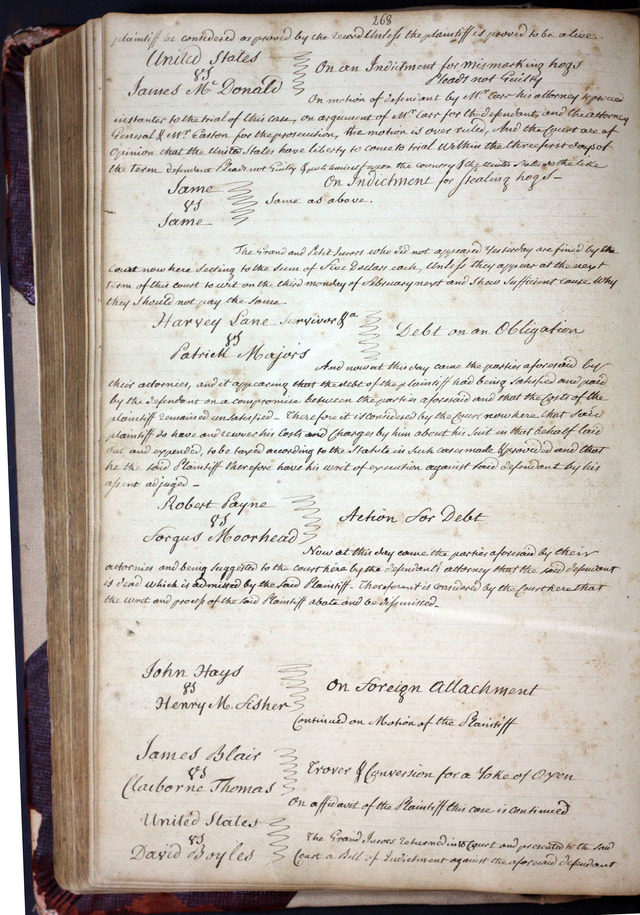 268
plaintiff be considered as proved by the record Unless the plaintiff is proved to be alive.
United States
vs
James Mc Donald
On an Indictment for mismarking hogs
Pleads not Guilty
On motion of defendant by Mr. Carr his attorney to proceed
instanter to the trial of this case, on argument of Mr. Carr for the defendant, and the attorney
General & Mr. Easton for the prosecution, the motion is over ruled, And the Court are of
Opinion that the United States have liberty to come to trial within the three first days of
the Term defendant Pleads not Guilty & puts himself upon the Country & the United States do the like
Same
vs
Same
On Indictment for stealing hogs
Same as above.
The Grand and Petit Jurors who did not appeared Yesterday are fined by the
Court now here setting to the sum of Five Dollars each, Unless they appear at the next
term of this court to wit on the third monday of February next and shew sufficient cause Why
they should not pay the same
Harvey Lane Survivor &a
vs
Patrick Majors
Debt on an Obligation
And now at this day came the parties aforesaid by
their attornies, and it appearing that the debt of the plaintiff had being satisfied and paid
by the defendant on a compromise between the parties aforesaid and that the Costs of the
plaintiff remained unsatisfied - Therefore it is considered by the Court now here that said
plaintiff do have and recover his Costs and Charges by him about his Suit in that behalf laid
out and expended, to be taxed according to the Statute in such cases made & provided and that
he the said Plaintiff therefore have his writ of execution against said defendant by his
assent adjuged -
Robert Payne
vs
Forgus Moorhead
Action for Debt
Now at this day came the parties aforesaid by their
attornies and being suggested to the court here by the defendants attorney that the said defendant
is dead which is admitted by the said Plaintiff - Therefore it is considered by the Court here that
the writ and process of the said Plaintiff abate and be dissmissed -
John Hays
vs
Henry M. Fisher
On Foreign Attachment
Continued on Motion of the Plaintiff
James Blair
vs
Claiborne Thomas
Trover & Conversion for a Yoke of Oxen
On affidavit of the Plaintiff this case is continued
United States
vs
David Boyles
The Grand Jurors returned into Court and presented to the said
Court a Bill of Indictment against the aforesaid defendant